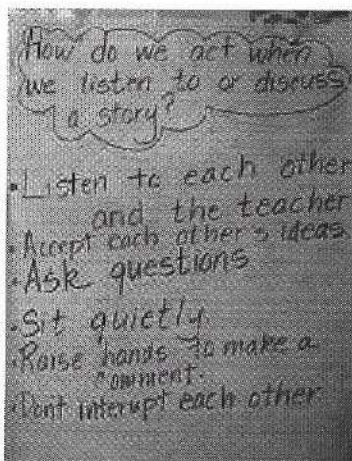 How do we act when
we listen to or discuss
a story?
• Listen to each other
and the teacher
• Accept each other's ideas
• Ask questions
• Sit quietly
• Raise hands to make a
comment.
• Dont interupt each other